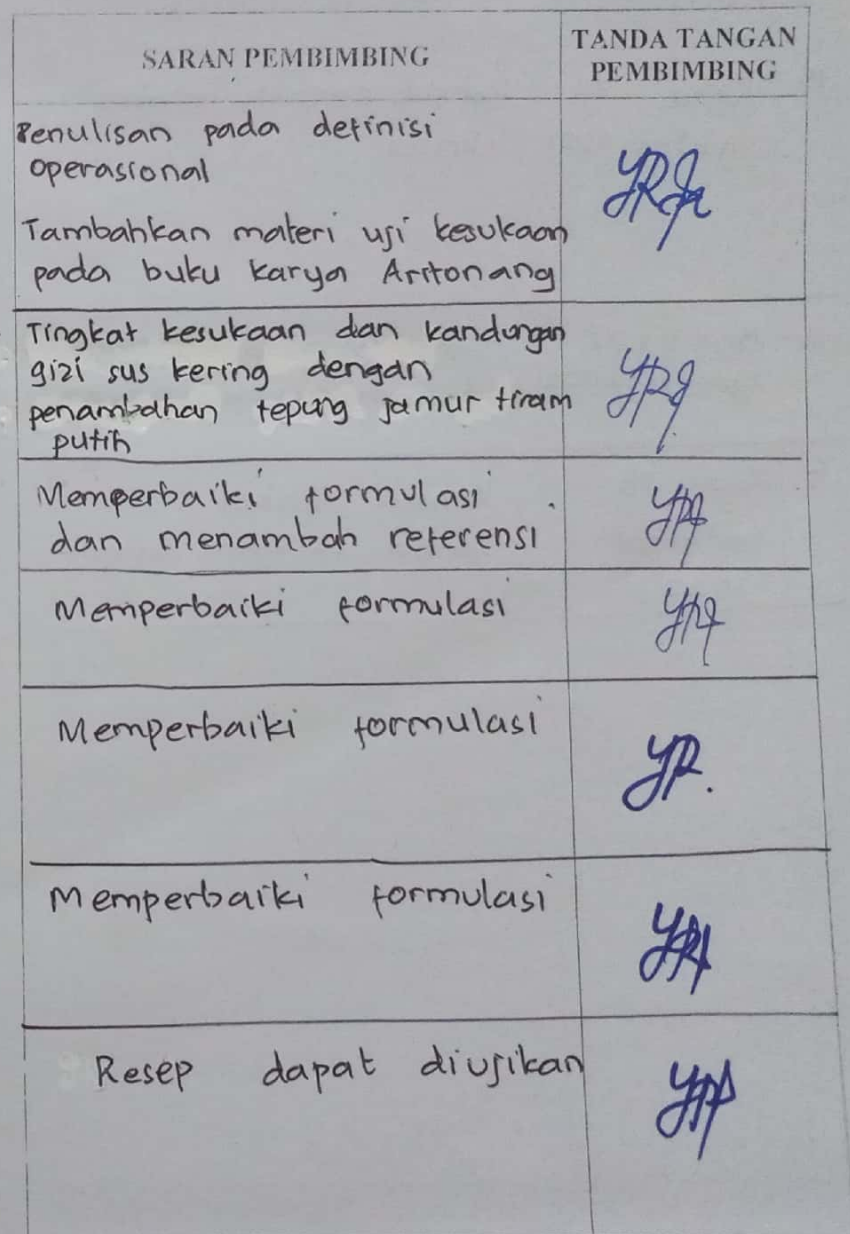 SARAN PEMBIMBING
TANDA TANGAN
PEMBIMBING
Penulisan pada definisi
operasional
Tambahkan materi uji kesukaan
pada buku karya Aritonang
Tingkat kesukaan dan kandungan
gizi sus kering dengan
penambahan tepung jamur tiram
putih
Memperbaiki formulasi
dan menambah referensi
Memperbaiki formulasi
Memperbaiki formulasi
Memperbaiki formulasi
Resep dapat diujikan